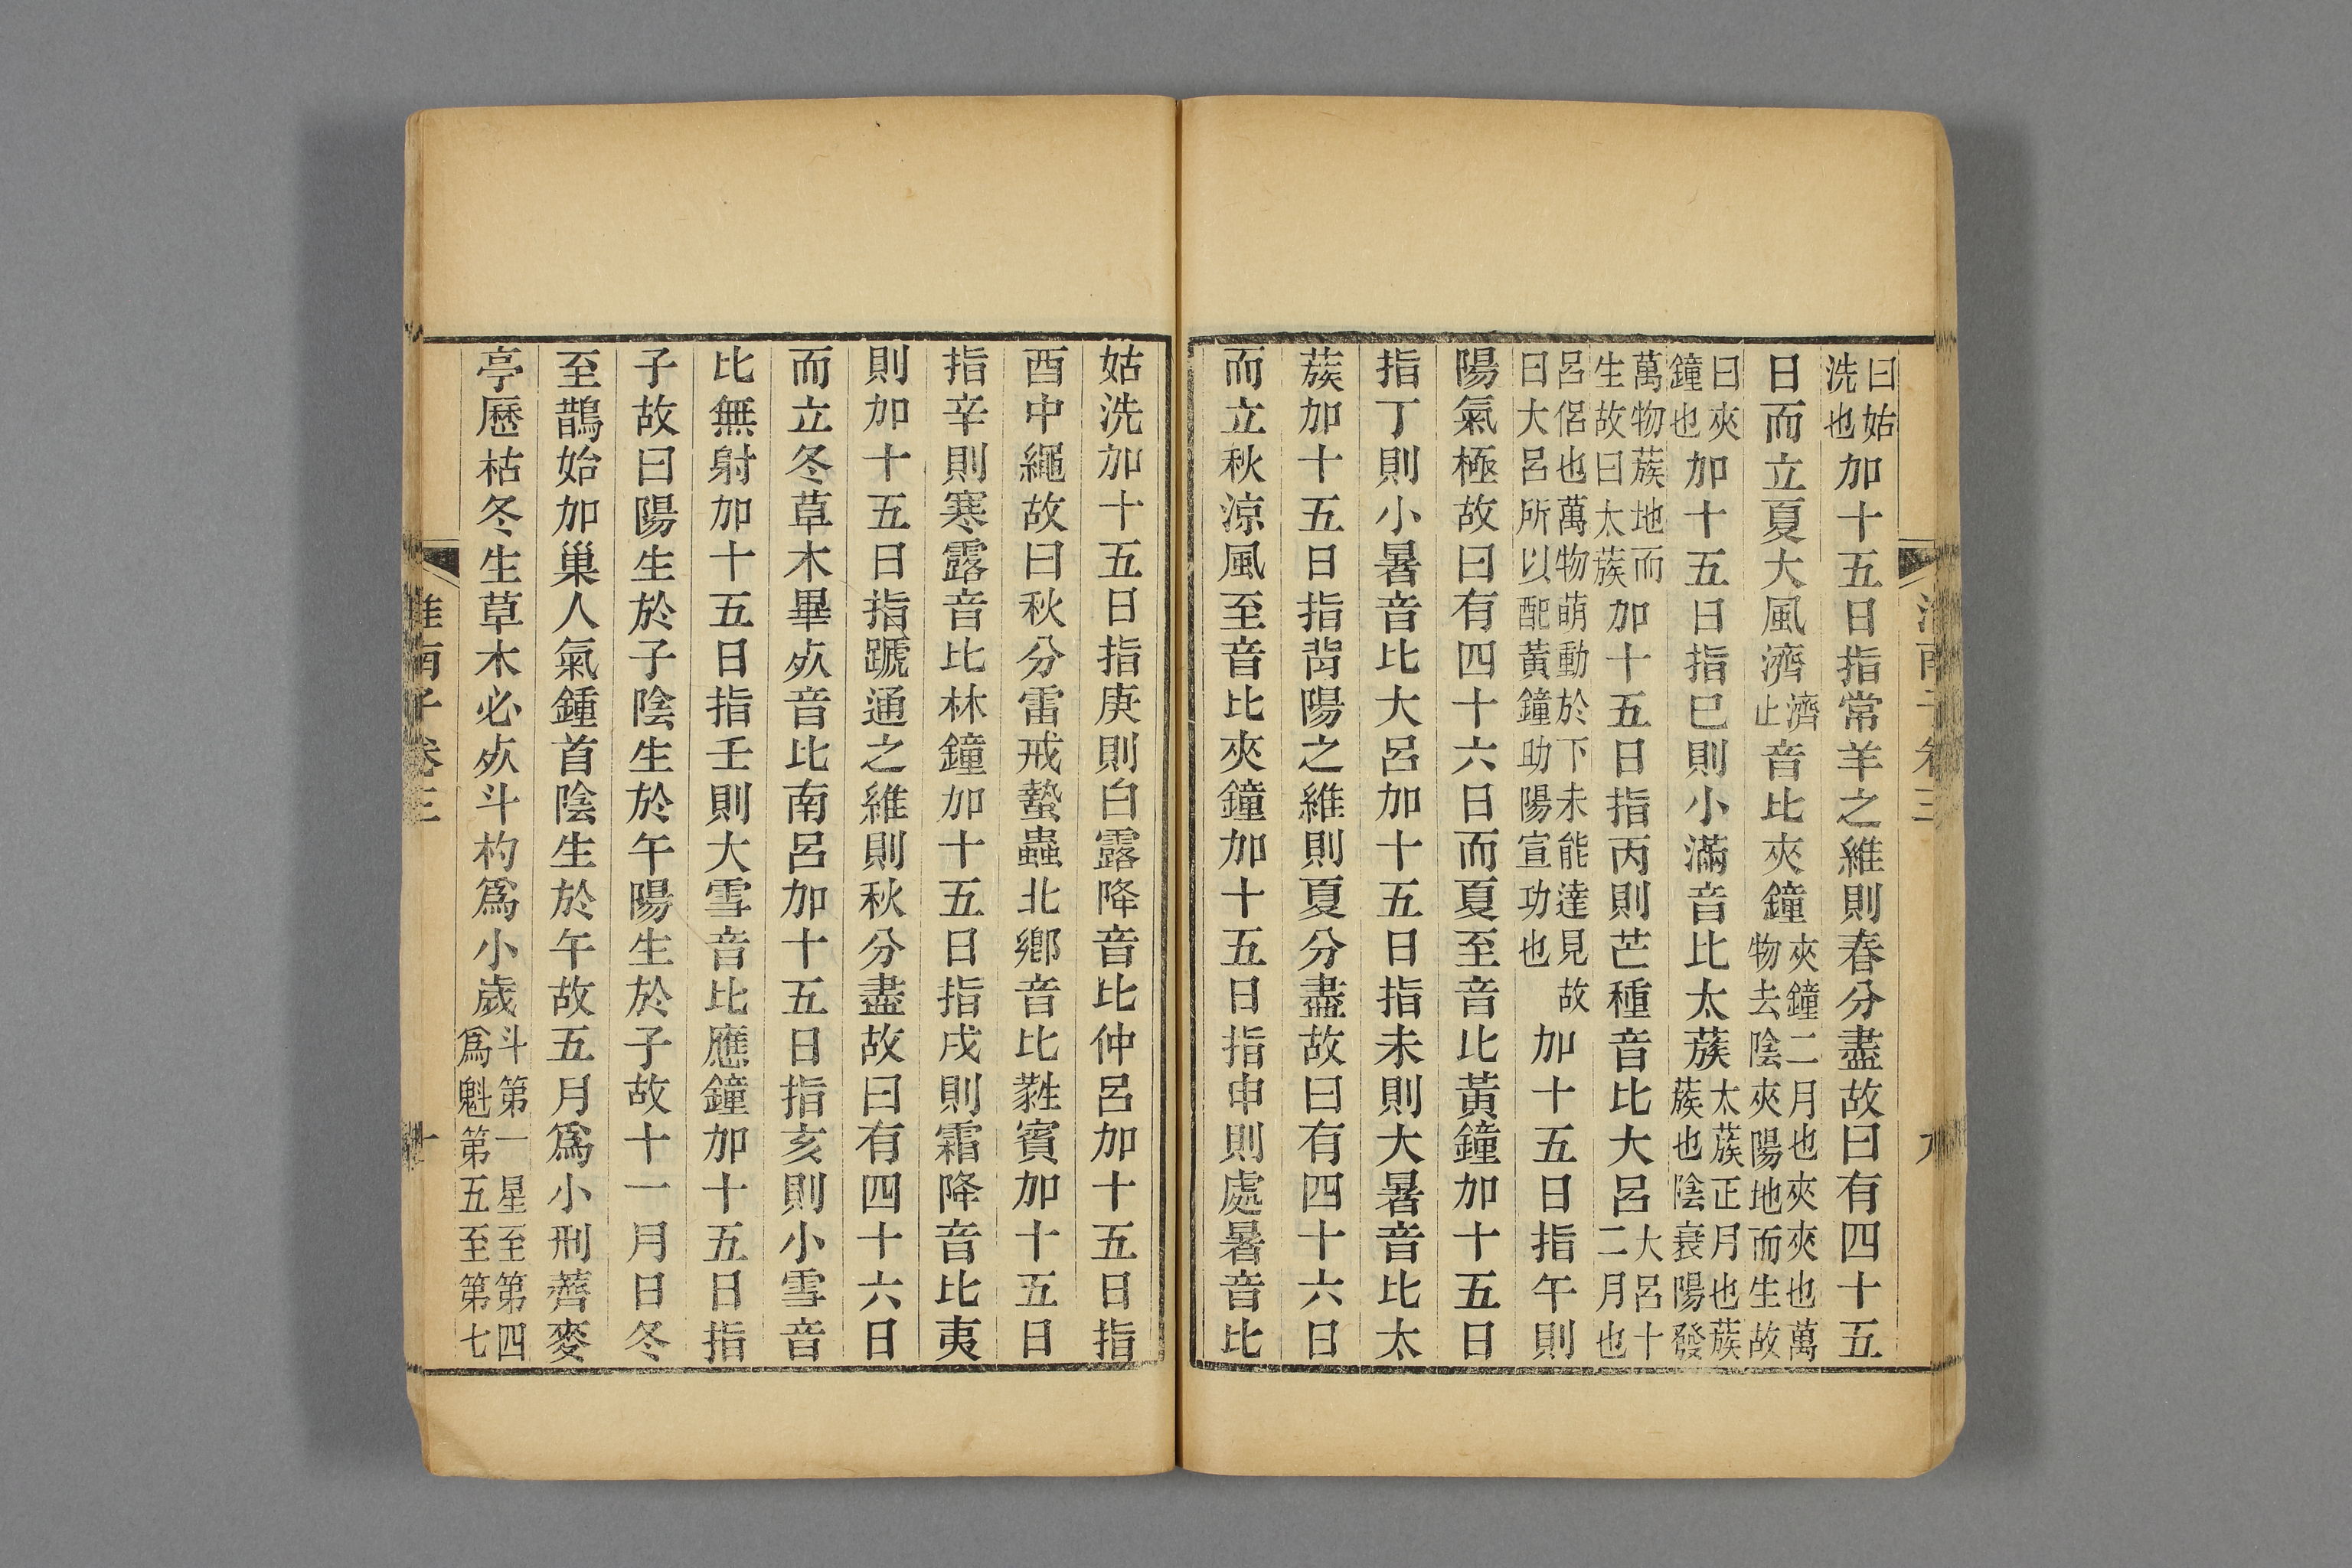 曰姑洗也加十五日指常羊之維則春分盡故曰有四十五
日而立夏大風濟濟止音比夾鐘夾鐘二月也夾夾也萬物去陰夾陽地而生故
曰夾鐘也加十五日指巳則小滿音比太蔟太蔟正月也蔟蔟也陰衰陽發
萬物蔟地而生故曰太蔟加十五日指丙則芒種音比大呂大呂十二月也
呂侶也萬物萌動於下未能達見故曰大呂所以配黃鐘助陽宣功也加十五日指午則
陽氣極故曰有四十六日而夏至音比黃鐘加十五日
指丁則小暑音比大呂加十五日指未則大暑音比太
蔟加十五日指背陽之維則夏分盡故曰有四十六日
而立秋涼風至音比夾鐘加十五日指申則處暑音比
姑洗加十五日指庚則白露降音比仲呂加十五日指
酉中繩故曰秋分雷戒蟄蟲北鄉音比蕤賓加十五日
指辛則寒露音比林鐘加十五日指戌則霜降音比夷
則加十五日指蹏通之維則秋分盡故曰有四十六日
而立冬草木畢𣦸音比南呂加十五日指亥則小雪音
比無射加十五日指壬則大雪音比應鐘加十五日指
子故曰陽生於子陰生於午陽生於子故十一月日冬
至鵲始加巢人氣鍾首陰生於午故五月爲小刑薺麥
亭歷枯冬生草木必𣦸斗杓爲小歲斗第一星至第四爲魁第五至第七
淮南子卷三 十